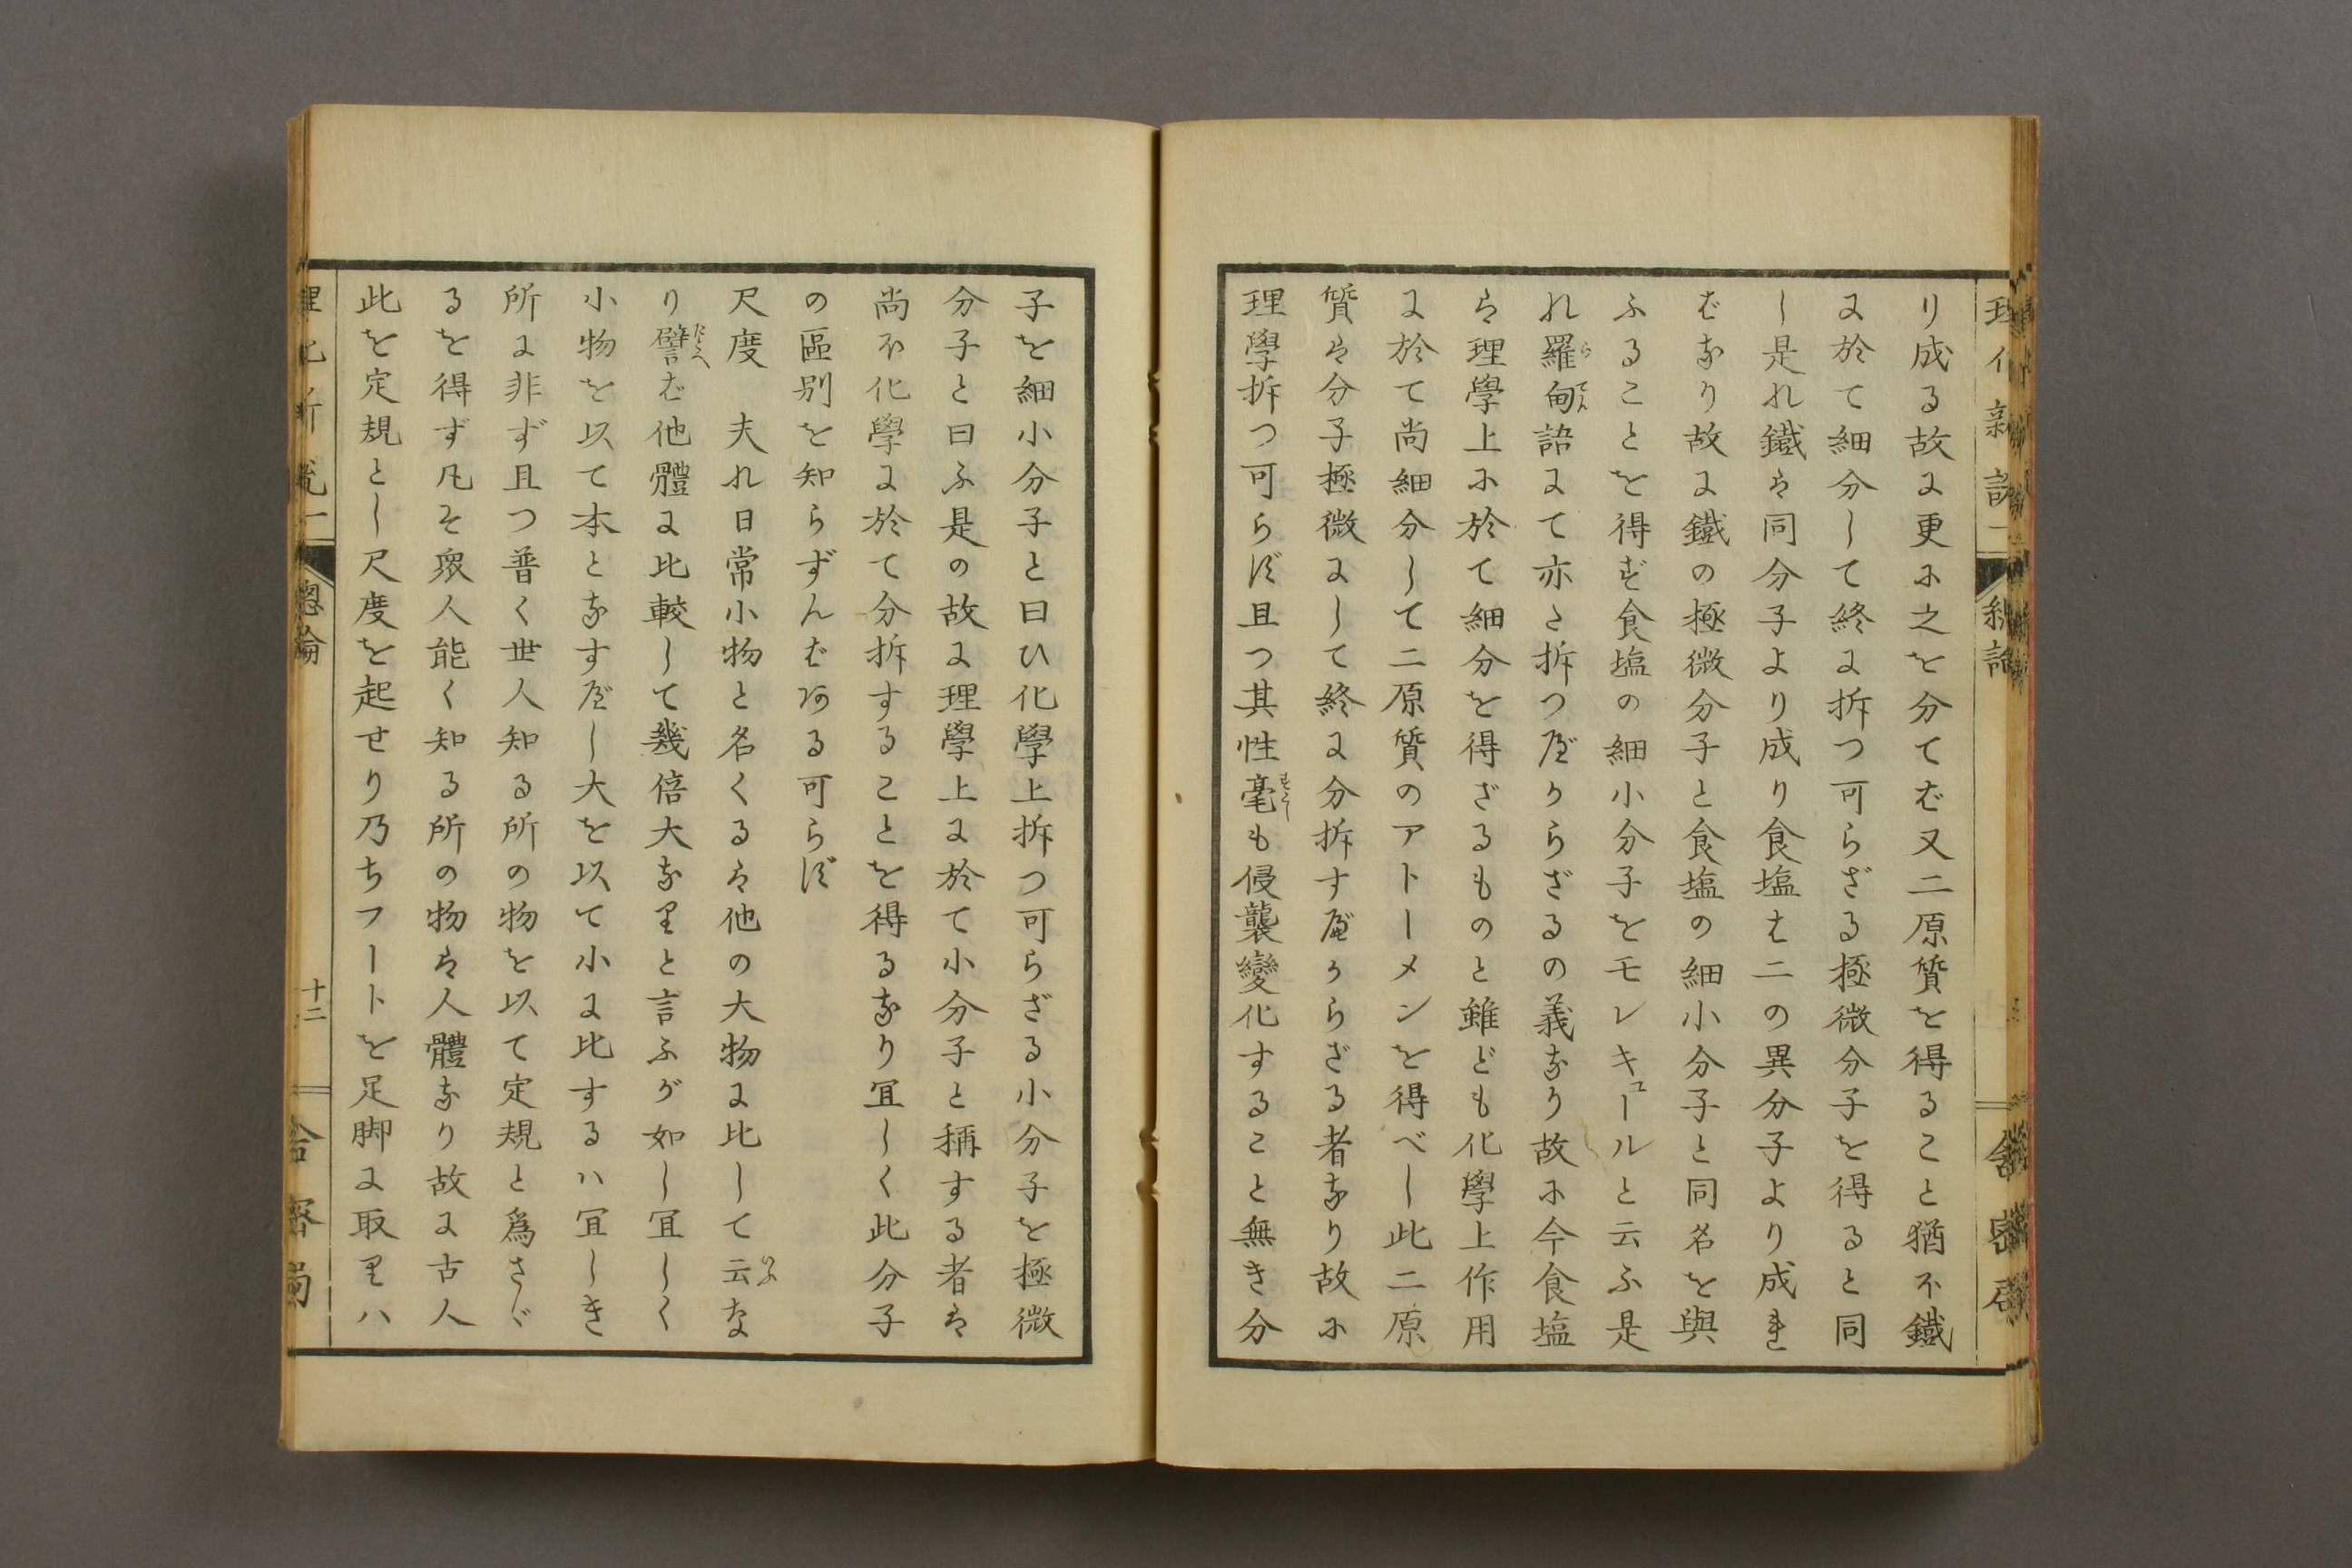 り成る故に更に之を分てば又二原質を得ること猶不鐵
に於て細分して終に拆つ可らざる極微分子を得ると同
し是れ鐵は同分子より成り食塩は二の異分子より成れ
ばなり故に鐵の極微分子と食塩の細小分子と同名を與
ふることを得ず食塩の細小分子をモレキュールと云ふ是
れ羅甸語にて亦た拆つべからざるの義なり故に今食塩
は理學上に於て細分を得ざるものと雖ども化學上作用
に於て尚細分して二原質のアトーメンを得べし此二原
質は分子極微にして終に分拆すべからざる者なり故に
理學拆つ可らず且つ其性毫も侵襲變化すること無き分
子を細小分子と曰ひ化學上拆つ可らざる小分子を極微
分子と曰ふ是の故に理學上に於て小分子と稱する者は
尚ほ化學に於て分拆することを得るなり冝しく此分子
の區別を知らずんばある可らず
尺度 夫れ日常小物と名くるは他の大物に比して云な
り譬ば他體に比較して幾倍大なりと言ふが如し冝しく
小物を以て本となすべし大を以て小に比するハ冝しき
所に非ず且つ普く世人知る所の物を以て定規と為さゞ
るを得ず凡そ衆人能く知る所の物は人體なり故に古人
此を定規とし尺度を起せり乃ちフートを足脚に取りハ
總論
十二